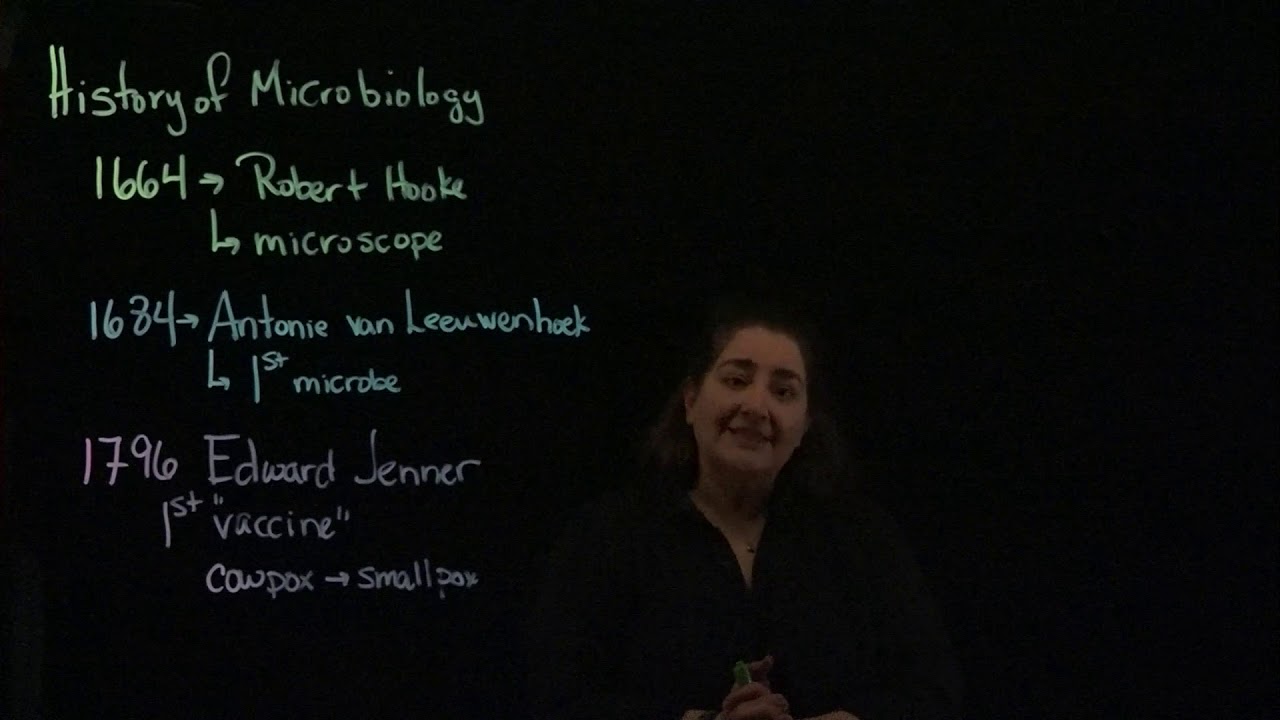 History of Microbiology
1664 → Robert Hooke
↳ microscope
1684 → Antonie van Leeuwenhoek
↳ 1st microbe
1796 Edward Jenner
1st "vaccine"
cowpox → smallpox